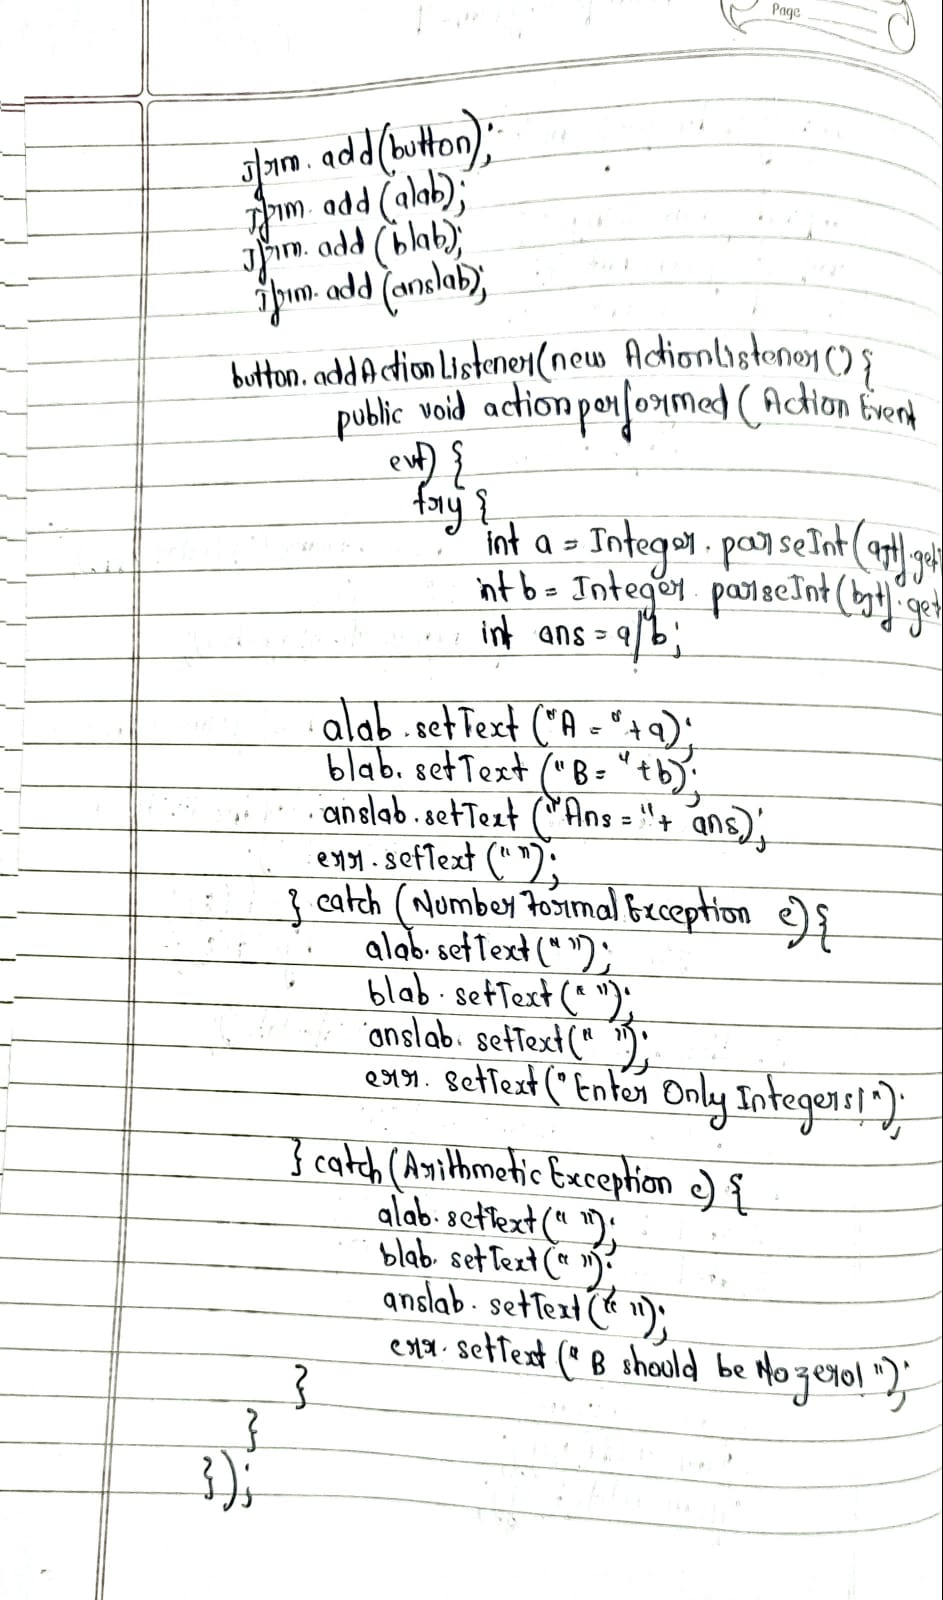 Page
jfrm.add(button);
jfrm.add(alab);
jfrm.add(blab);
jfrm.add(anslab);
button.addActionListener(new Actionlistener() {
public void actionperformed(Action Event
evt) {
try {
int a = Integer.parseInt(ajtf.get
int b = Integer.parseInt(bjtf.get
int ans = a/b;
alab.setText("A = "+a);
blab.setText("B= "+b);
anslab.setText("Ans = "+ ans);
err.setText("");
} catch (Number Format Exception e) {
alab.setText("");
blab.setText(" ");
anslab.setText(" ");
err.setText("Enter Only Integers!");
} catch (Arithmetic Exception e) {
alab.setText(" ");
blab.setText(" ");
anslab.setText(" ");
err.setText("B should be No zero!");
}
}
});